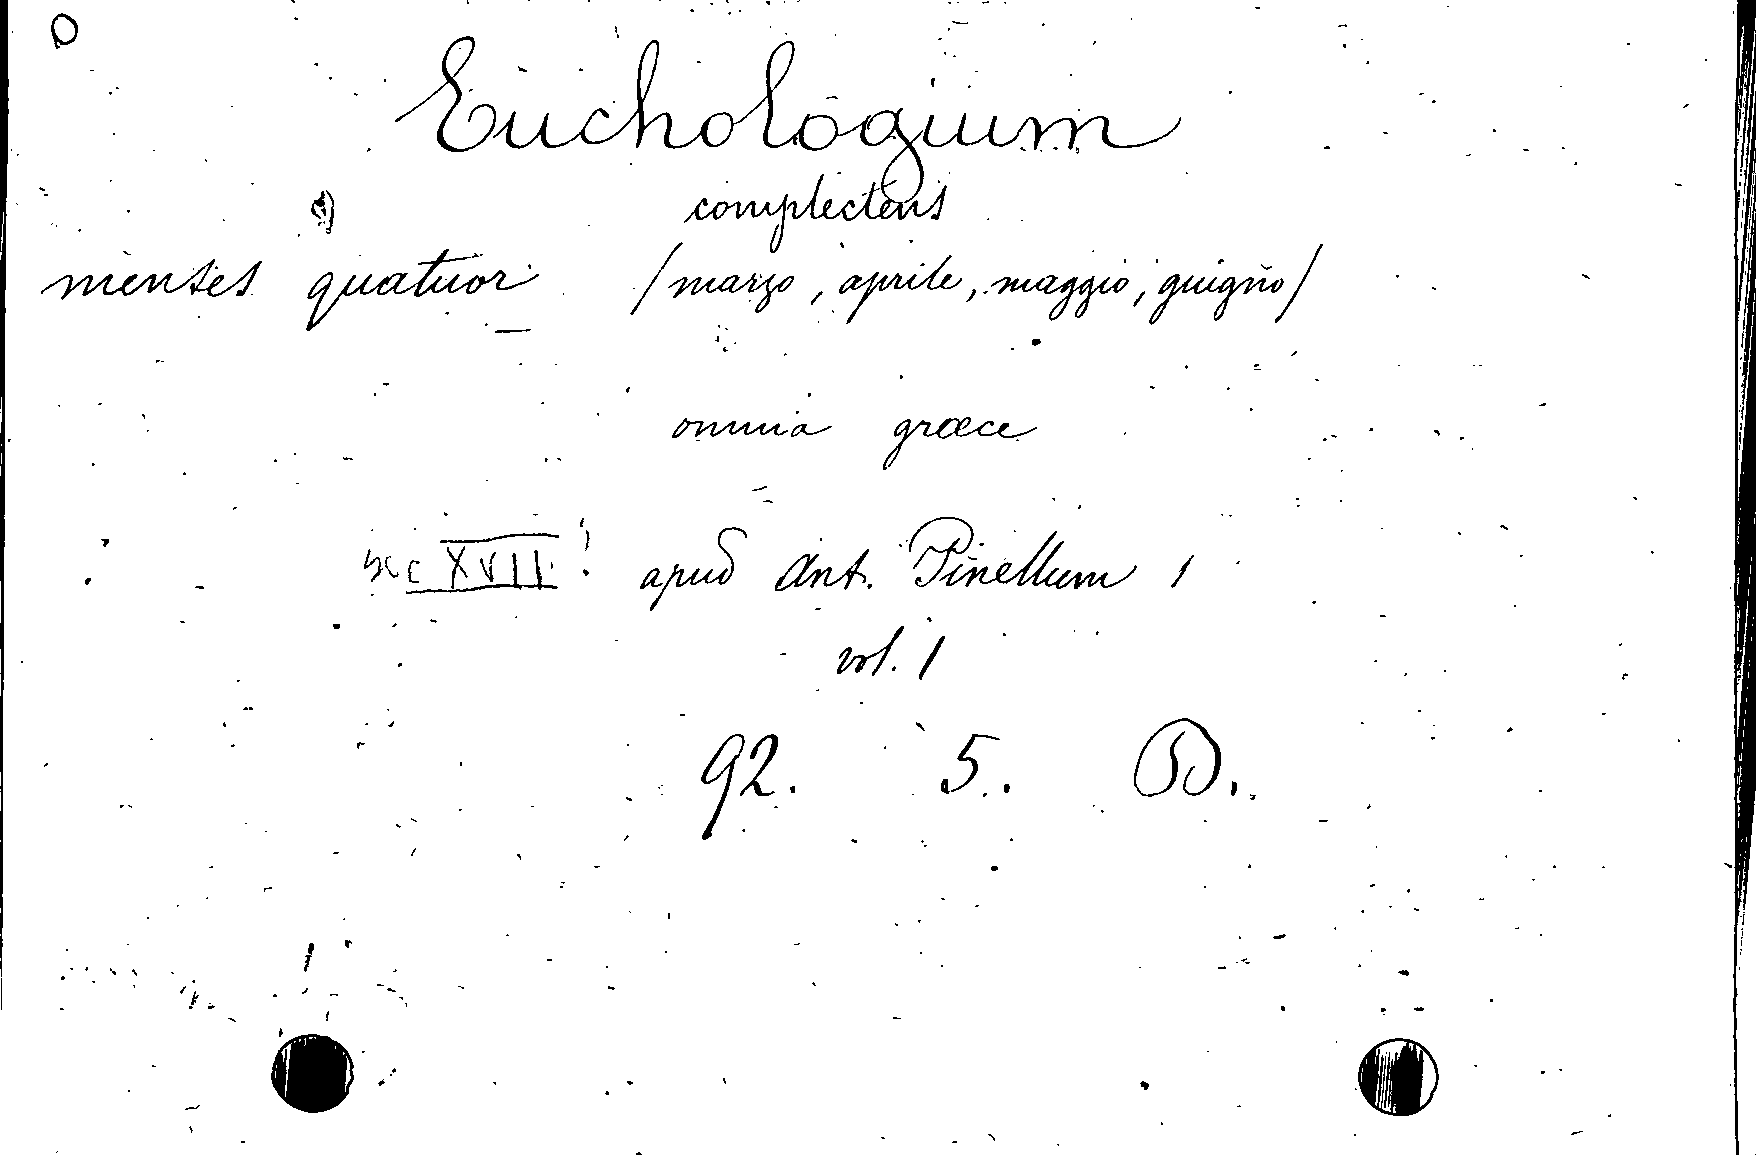 Euchologium
complectens
menses quatuor /marzo, aprile, maggio, guigno/
omnia græce
sec XVII? apud Ant. Pinellum
vol. 1
92. 5. B.